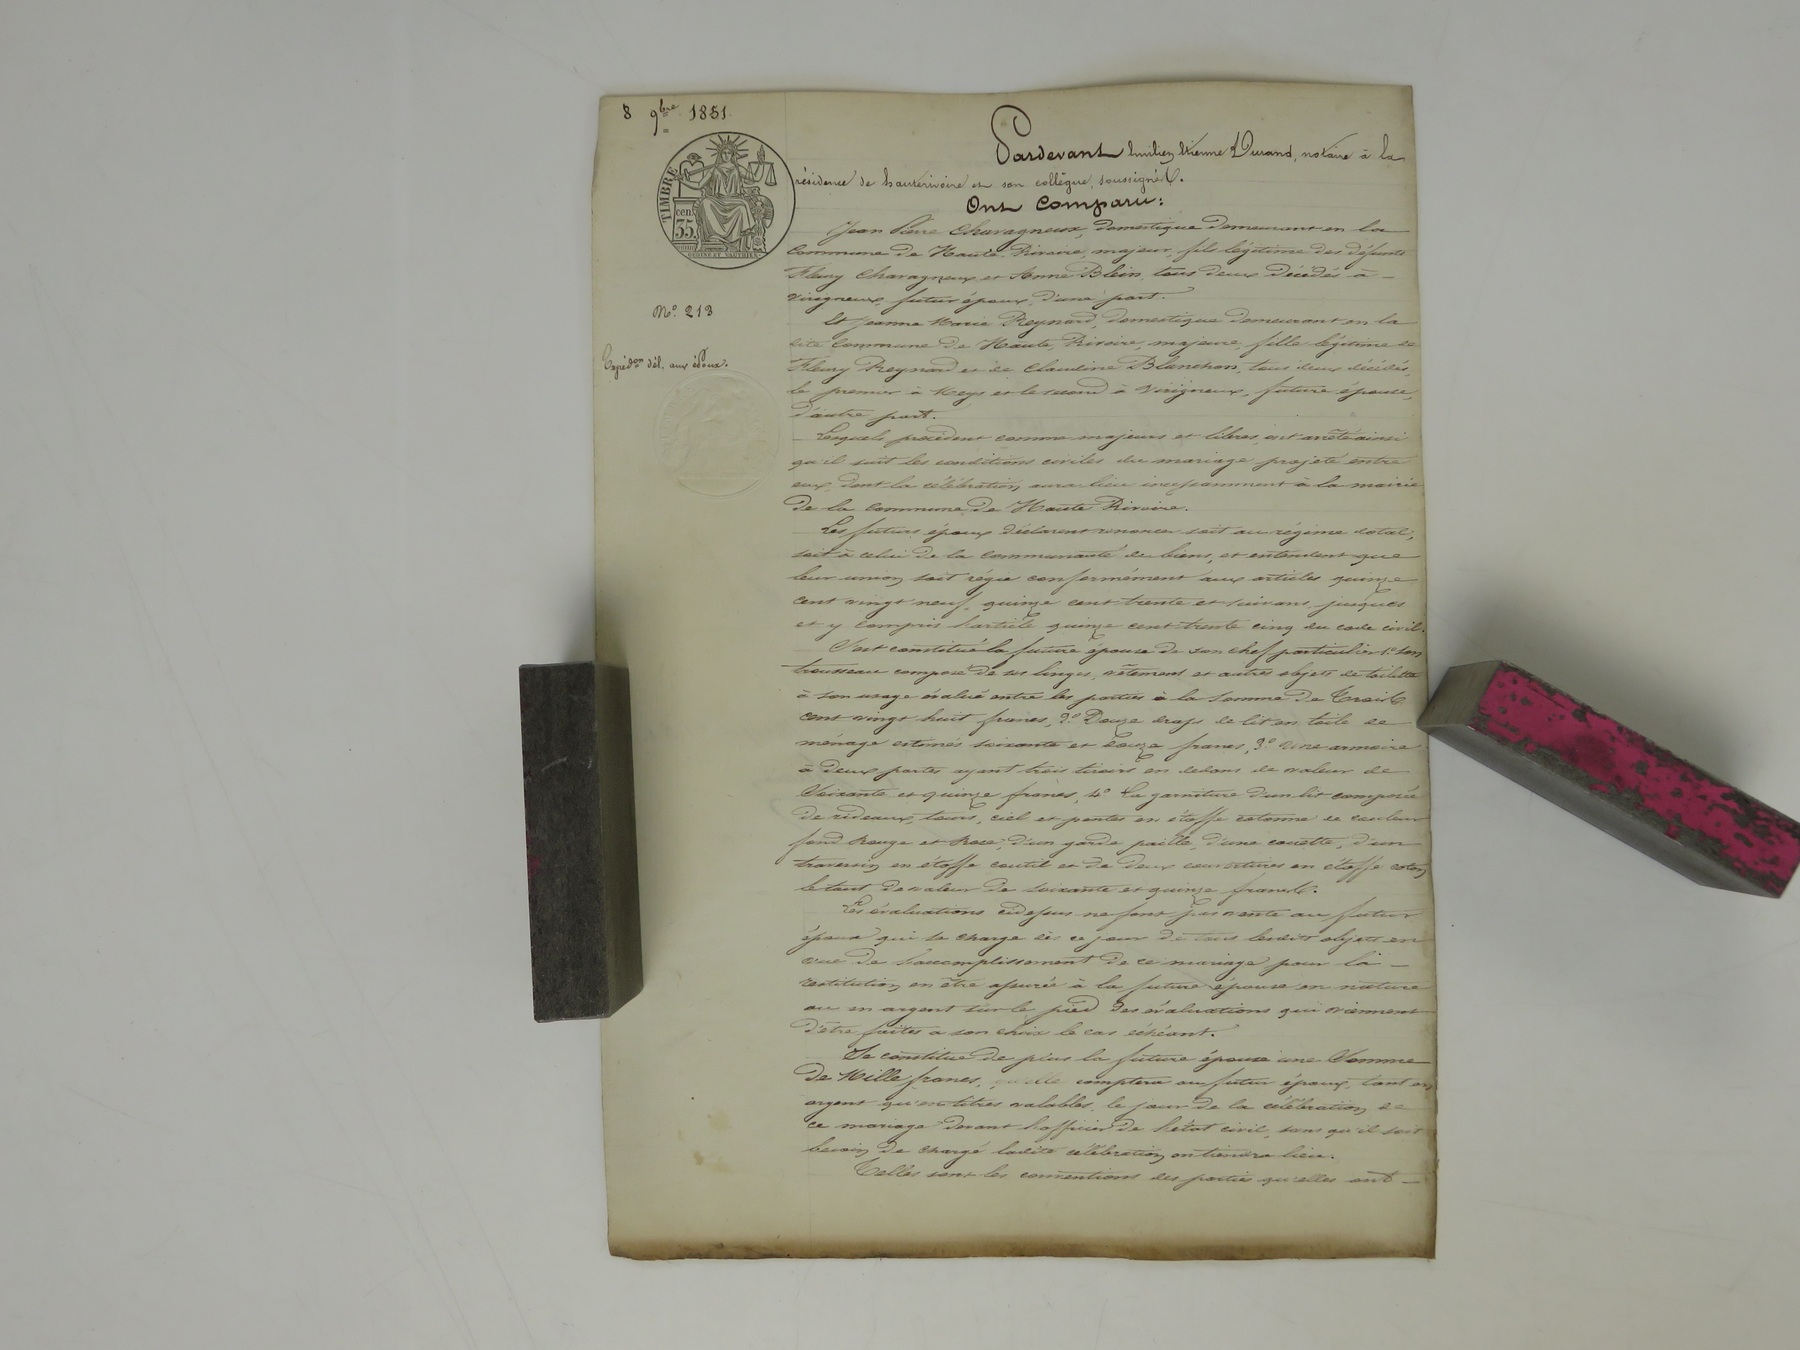 8 9bre 1851
TIMBRE
cen.
35
N° 213
Expédon dél. aux époux.
Pardevant Emilien Etienne Durand, notaire à la
résidence de hauterivoire et son collègue, soussignés.
Ont Comparu:
Jean Pierre Chavagneux, domestique demeurant en la
Commune de Haute Rivoire, majeur, fils légitime des défunts
Fleury Chavagneux et Anne Blein, tous deux décédés à –
Virigneux, futur époux, d'une part.
Et Jeanne Marie Reynard, domestique demeurant en la
dite Commune de Haute Rivoire, majeure, fille légitime de
Fleury Reynard et de Claudine Blanchon, tous deux décédés,
le premier à Meys et le second à Virigneux, future épouse,
d'autre part.
Lesquels procédant comme majeurs et libres, ont arrêté ainsi
qu'il suit les conditions civiles du mariage projeté entre
eux, dont la célébration aura lieu incessamment à la mairie
de la Commune de Haute Rivoire.
Les futurs époux déclarent renoncer soit au régime dotal,
soit à celui de la communauté de biens, et entendent que
leur union soit régie conformément aux articles quinze
cent vingt neuf, quinze cent trente et suivans jusques
et y compris l'article quinze cent trente cinq du code civil.
S'est constitué la future épouse de son chef particulier 1° son
trousseau composé de ses linges, vêtements et autres objets de toilette
à son usage évalué entre les parties à la somme de Trois
cent vingt huit francs, 2° Douze draps de lit en toile de
ménage estimés soixante et douze francs, 3° une armoire
à deux portes ayant trois tiroirs en dedans de valeur de
Soixante et quinze francs, 4° la garniture d'un lit composée
de rideaux, tours, ciel et pentes en étoffe cotonne de couleur
fond Rouge et Rose, d'un garde paille, d'une couette, d'un
traversin en étoffe coutil et de deux couvertures en étoffe coton
le tout de valeur de soixante et quinze francs.
Les évaluations cidessus ne font pas vente au futur
époux qui se charge dès ce jour de tous lesdits objets en
vue de l'accomplissement de ce mariage pour la –
restitution en être assurée à la future épouse en nature
ou en argent sur le pied des évaluations qui viennent
d'être faites à son choix le cas échéant.
Se constitue de plus la future épouse une Somme
de Mille francs, qu'elle comptera au futur époux, tant en
argent qu'en titres valables, le jour de la célébration de
ce mariage devant l'officier de l'état civil, sans qu'il soit
besoin de chargé ladite célébration en tiendra lieu.
Telles sont les conventions des parties qu'elles ont –